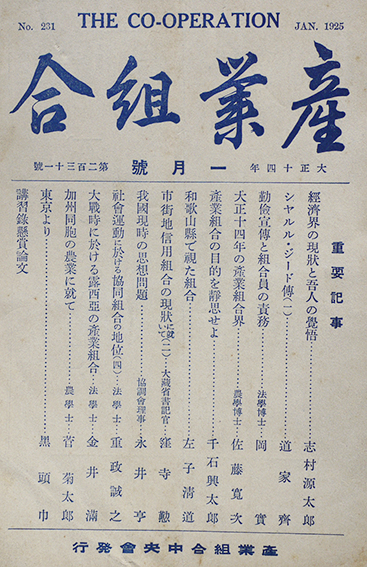 No. 231
THE CO-OPERATION
JAN. 1925
産業組合
大正十四年
一月號
第二百三十一號
重要記事
經濟界の現狀と吾人の覺悟……志村源太郎
シヤルル・ジード傳(一)……道家齊
勤儉宣傳と組合員の責務……法學博士……岡實
大正十四年の產業組合界……農學博士……佐藤寬次
產業組合の目的を靜思せよ……千石興太郎
和歌山縣で視た組合……左子淸道
市街地信用組合の現狀に就いて(二)……大藏省書記官……窪寺勳
我國現時の思想問題……協調會理事……永井亨
社會運動に於ける協同組合の地位(四)……法學士……重政誠之
大戰時に於ける露西亞の產業組合……法學士……金井滿
加州同胞の農業に就て……農學士……菅菊太郎
東京より……黑頭巾
講習錄懸賞論文
產業組合中央會發行